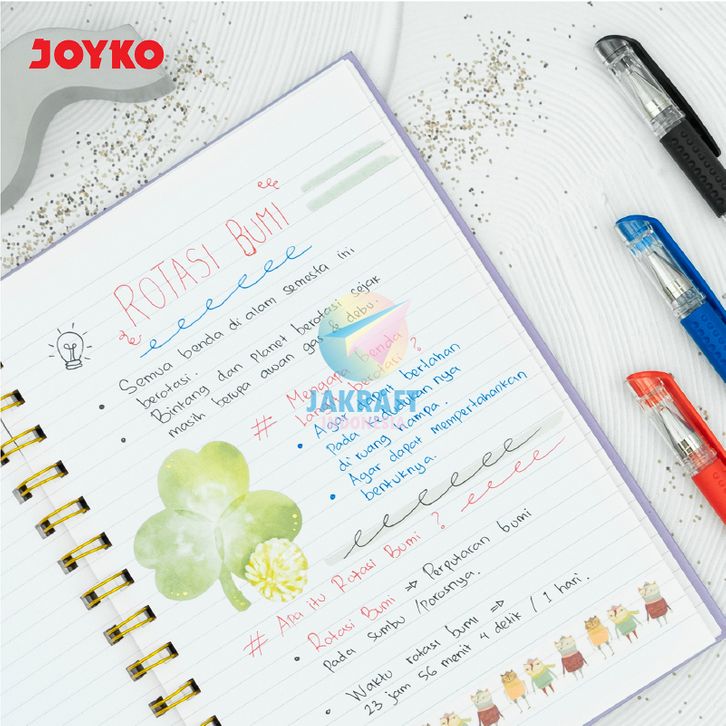 JOYKO
ROTASI BUMI
• Semua benda di alam semesta ini
berotasi.
• Bintang dan planet berotasi sejak
masih berupa awan gas & debu.
# Mengapa benda
berotasi ?
JAKRAFT
INDONESIA
• Agar dapat bertahan
pada nya
di ruang hampa.
• Agar dapat mempertahankan
bentuknya.
# Apa itu Rotasi Bumi ?
• Rotasi Bumi => Perputaran bumi
pada sumbu / porosnya.
• Waktu rotasi bumi =>
23 jam 56 menit 4 detik / 1 hari.